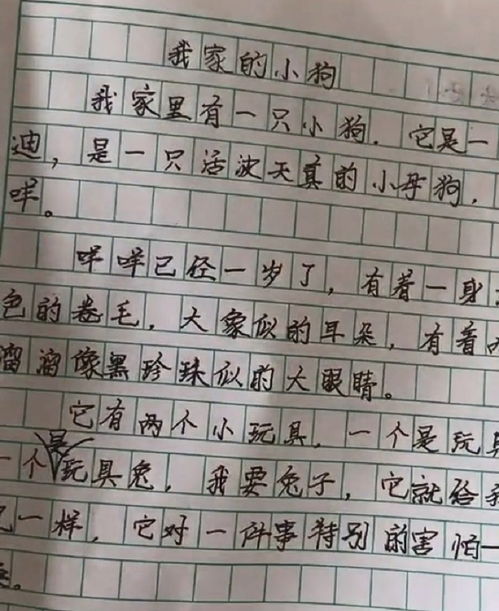 我家的小狗
我家里有一只小狗．它是一
迪，是一只活波天真的小母狗．
咩。
咩咩已径一岁了，有着一身
色的卷毛．大象似的耳朵，有着
溜溜像黑珍珠似的大眼睛。
它有两个小玩具．一个是玩具
一个是玩具兔．我要兔子，它就给
一样，它对一件事特别的害怕—